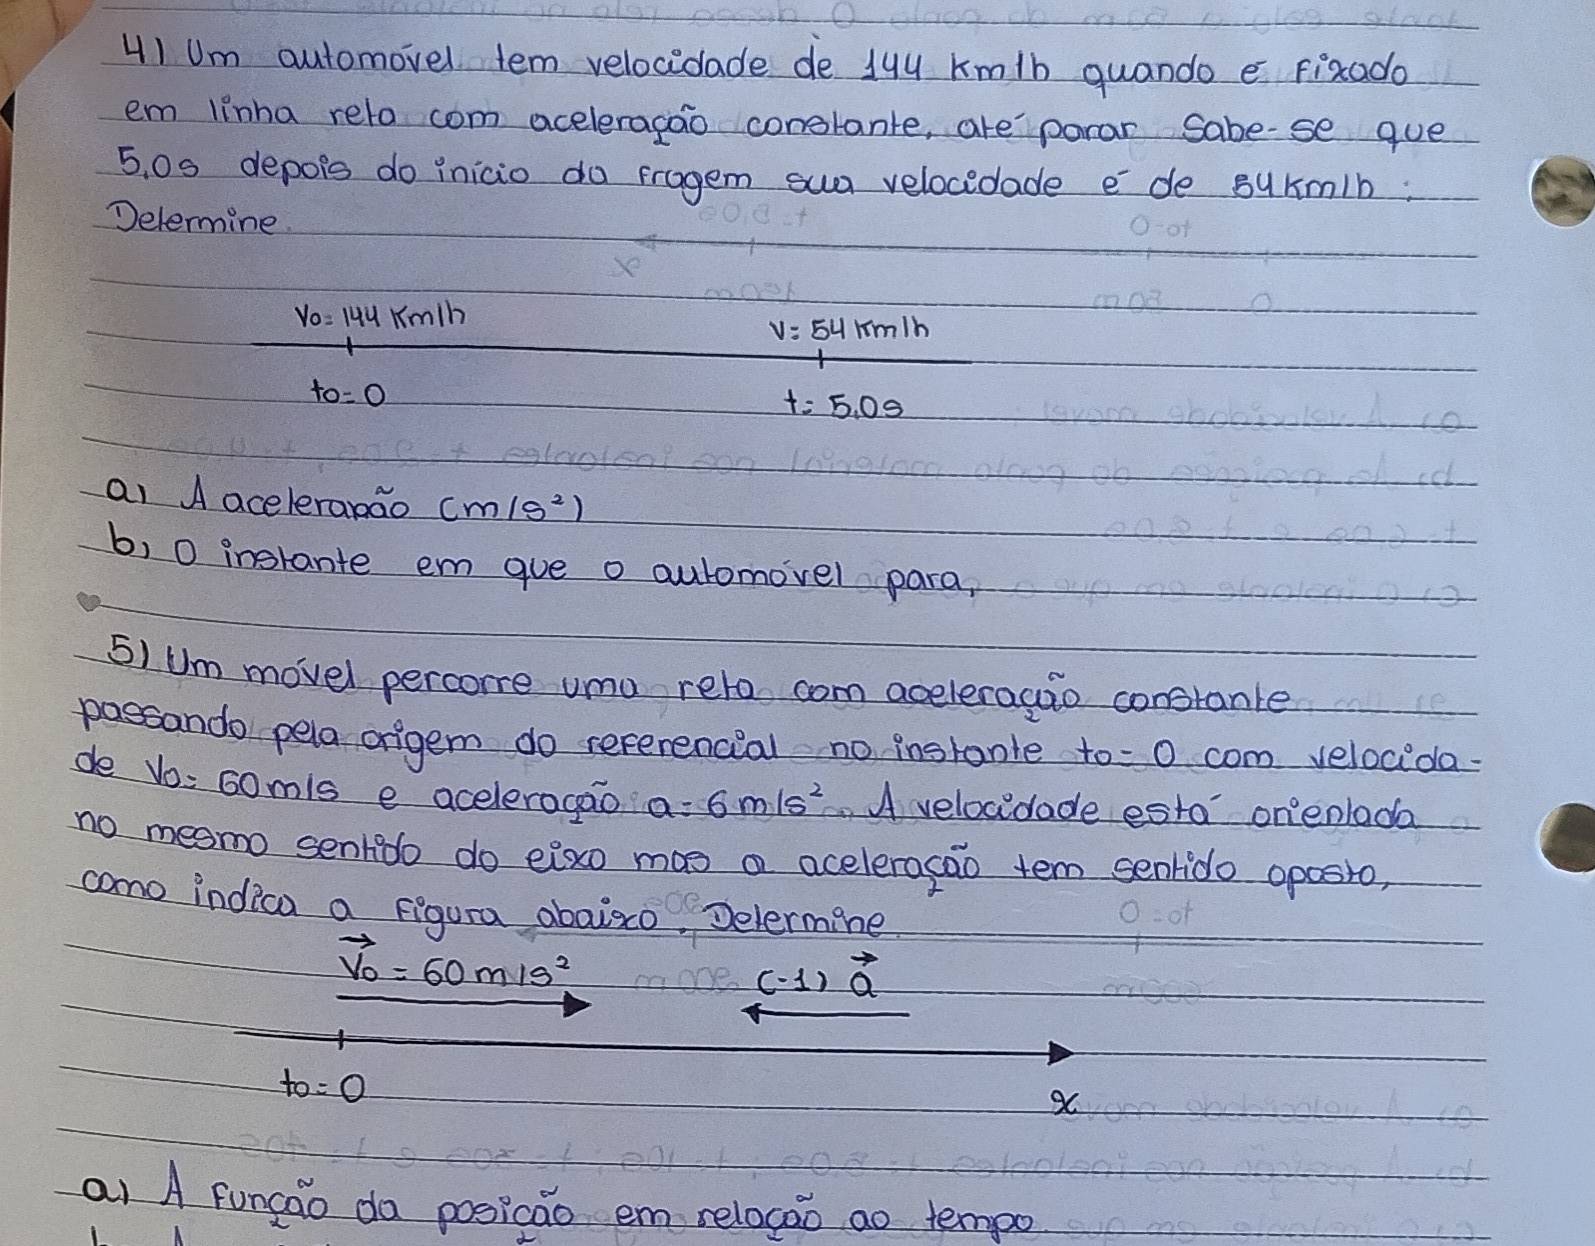 4) Um automóvel tem velocidade de 144 km/h quando é fixado
em linha reta com aceleração constante, até parar Sabe-se que
5,0s depois do início da fragem sua velocidade é de 54 km/h.
Determine.
V0=144 Km/h
V= 54 km/h
t0=0
t= 5,0s
a) A aceleração (m/s²)
b) O instante em que o automóvel para,
5) Um móvel percorre uma reta com aceleração constante
passando pela origem do referencial no instante t0=0 com velocida-
de V0= 60m/s e aceleração a=6m/s². A velocidade está orientada
no mesmo sentido do eixo mas a aceleração tem sentido oposto,
como indica a figura abaixo. Determine
V0 = 60m/s²
(-1) a
t0=0
x
a) A função da posição em relação ao tempo